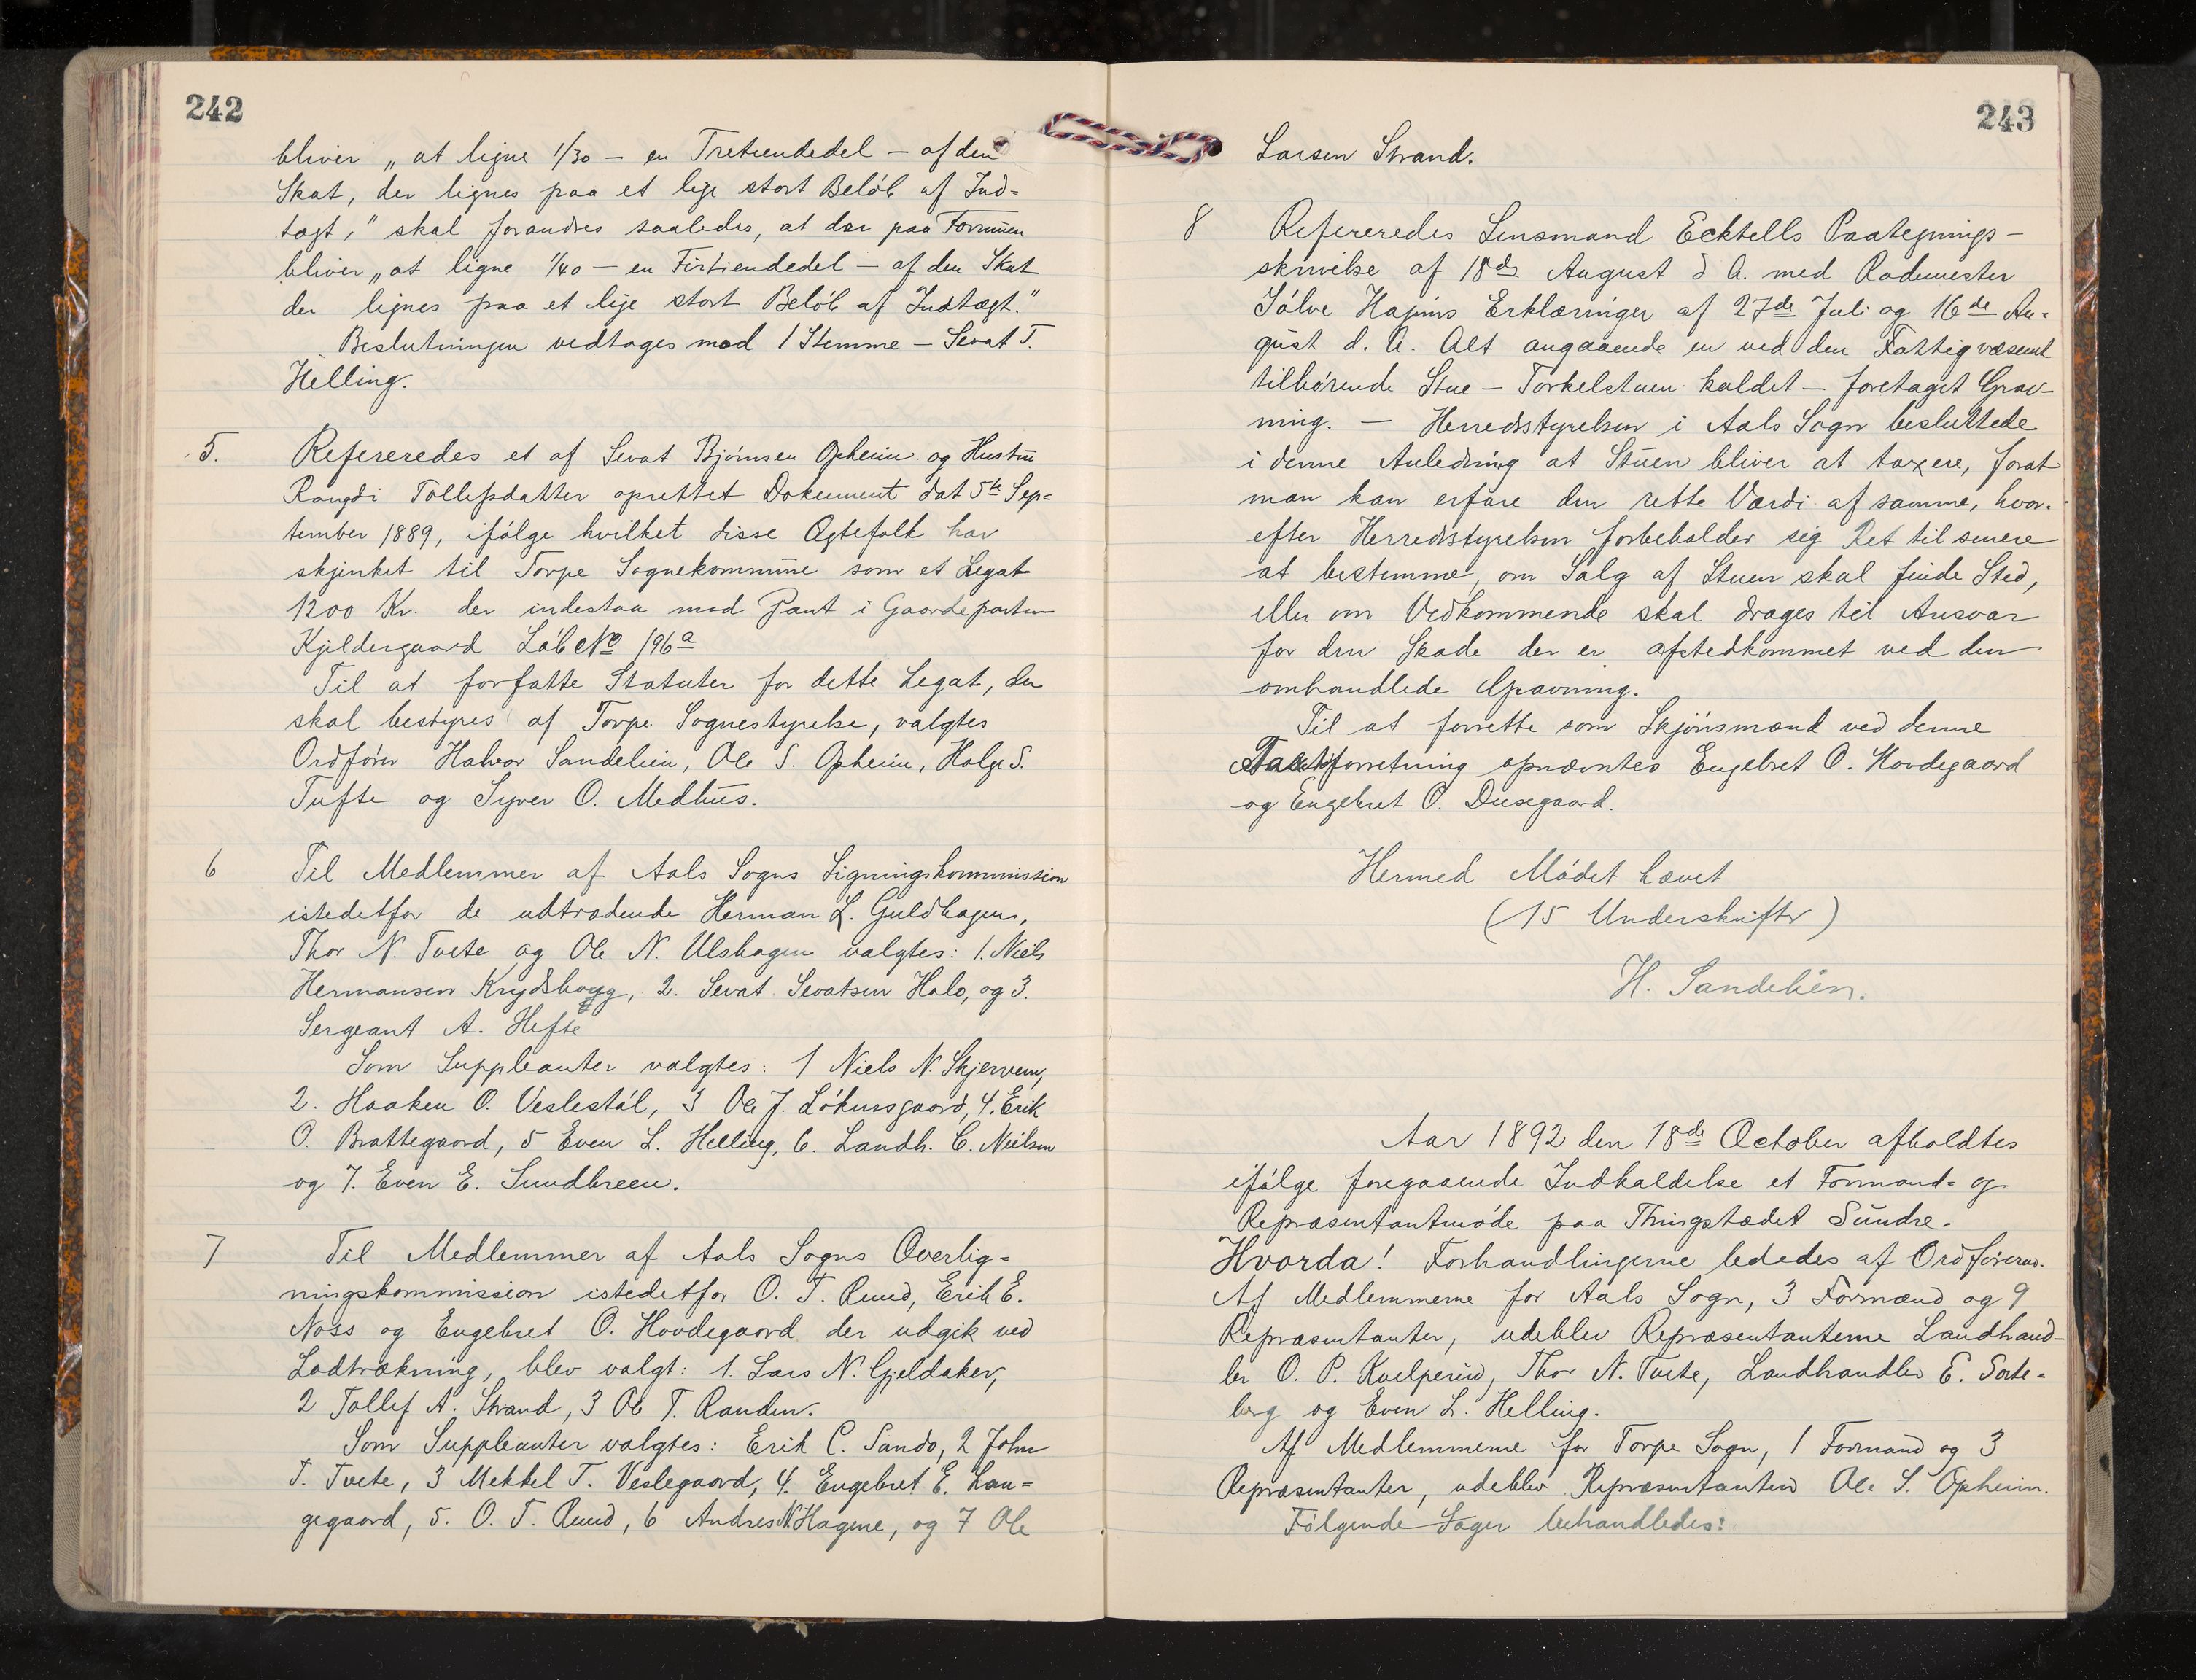 242
bliver „at ligne 1/30 – en Tretiendedel – af den
Skat, der lignes paa et lige stort Beløb af Ind=
tægt," skal forandres saaledes, at der paa Formuen
bliver „at ligne 1/40 – en Firtiendedel – af den Skat
der lignes paa et lige stort Beløb af Indtægt."
Beslutningen vedtages mod 1 Stemme – Sevat T.
Helling.
5. Refereredes et af Sevat Bjørnsen Opheim og Hustru
Rangdi Tollefsdatter oprettet Dokument dat 5te Sep=
tember 1889, ifølge hvilket disse Ægtefolk har
skjenket til Torpe Sognekommune som et Legat
1200 Kr. der indestaa mod Pant i Gaardeparten
Kjeldergaard Løb No 196a
Til at forfatte Statuter for dette Legat, der
skal bestyres af Torpe Sognestyrelse, valgtes
Ordfører Halvor Sandelien, Ole S. Opheim, Holge S.
Tufte og Syver O. Medhus.
6 Til Medlemmer af Aals Sogns Ligningskommission
istedetfor de udtrædende Herman L. Guldhagen,
Thor N. Tvete og Ole N. Ulshagen valgtes: 1. Niels
Hermansen Krydshoug, 2. Sevat Sevatsen Halo, og 3.
Sergeant A. Hefte
Som Suppleanter valgtes: 1 Niels N. Skjervem,
2. Haaken O. Veslestøl, 3 Ole J. Løkensgaard, 4. Erik
O. Brattegaard, 5 Even L. Helling, 6. Landh. C. Nielsen
og 7. Even E. Sundbreen.
7 Til Medlemmer af Aals Sogns Overlig=
ningskommission istedetfor O. T. Ruud, Erik E.
Noss og Engebret O. Hovdegaard der udgik ved
Lodtrækning, blev valgt: 1. Lars N. Gjeldaker,
2 Tollef A. Strand, 3 Ole T. Randen.
Som Suppleanter valgtes: Erik C. Sando, 2 John
T. Tvete, 3 Mekkel T. Veslegaard, 4. Engebret E. Lan=
gegaard, 5. O. T. Ruud, 6 Andres N. Hagene, og 7 Ole
243
Larsen Strand.
8 Refereredes Lensmand Ecktells Paategnings-
skrivelse af 18de August d A. med Rodemester
Sølve Erklæringer af 27de Juli og 16de Au=
gust d. A. Alt angaaende en ved den Fattigvæsenet
tilhørende Stue – Torkelstuen kaldet – foretaget Grav-
ning. – Herredsstyrelsen i Aals Sogn besluttede
i denne Anledning at Stuen bliver at taxere, forat
man kan erfare den rette Værdi af samme, hvor-
efter Herredsstyrelsen forbeholder sig Ret til senere
at bestemme, om Salg af Stuen skal finde Sted,
eller om Vedkommende skal drages til Ansvar
for den Skade der er afstedkommet ved den
omhandlede Gravning.
Til at forrette som Skjønsmænd ved denne
Taxtforretning opnævntes Engebret O. Hovdegaard
og Engebret O. Dusegaard.
Hermed Mødet hævet
(15 Underskrifter)
H. Sandelien.
Aar 1892 den 18de October afholdtes
ifølge foregaaende Indkaldelse et Formand- og
Repræsentantmøde paa Thingstedet Sundre.
Hvorda! Forhandlingerne lededes af Ordføreren.
Af Medlemmerne for Aals Sogn, 3 Formænd og 9
Repræsentanter, udeblev Repræsentanterne Landhand-
ler O. P. Kvelprud, Thor N. Tvete, Landhandler E. Sorte-
berg og Even L. Helling.
Af Medlemmerne for Torpe Sogn, 1 Formand og 3
Repræsentanter, udeblev Repræsentanten Ole S. Opheim.
Følgende Sager behandledes: